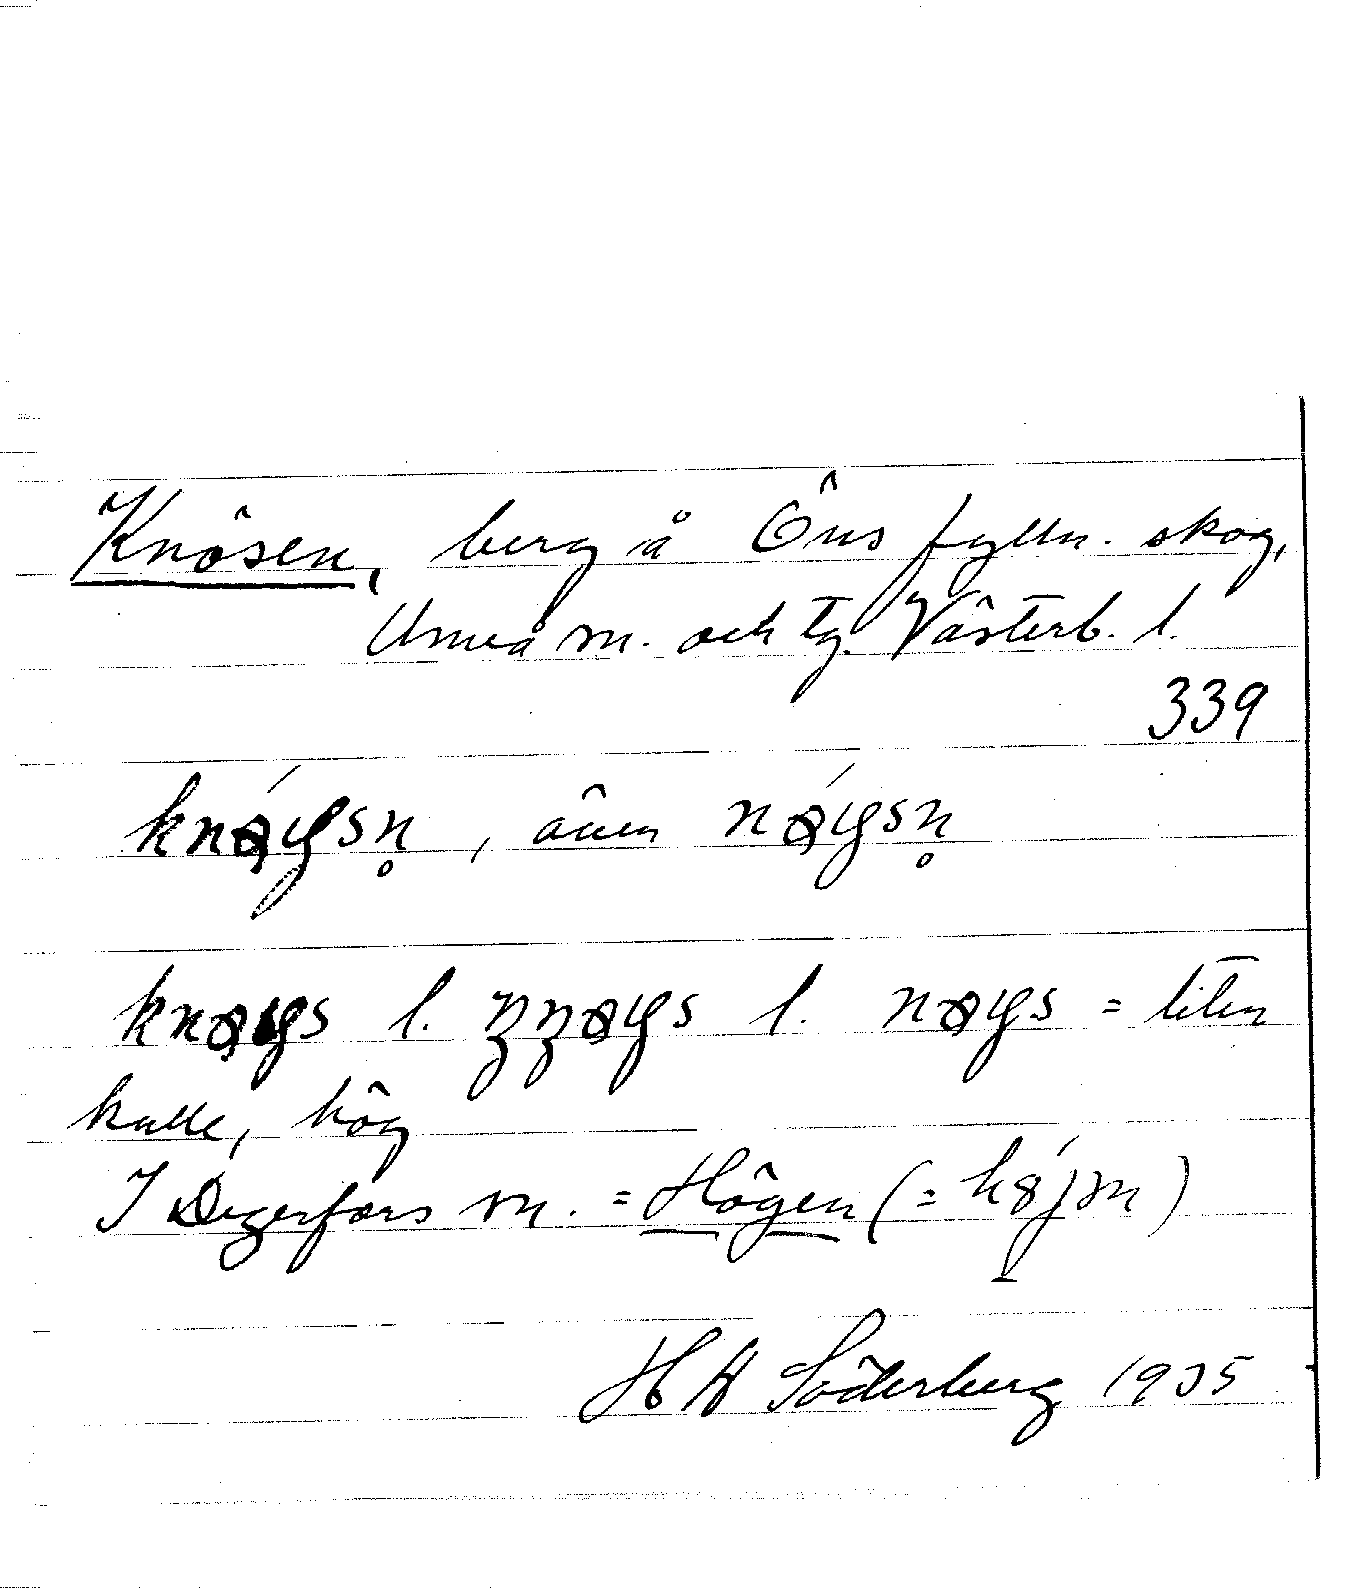 Knösen, berg å Öns fylln. skog,
Umeå m. och tg. Västerb. l.
339
knǿysn̥, även nǿysn̥
knøys l. øys l. nøys = liten
kulle, hög
I Degerfors m. = Högen (=
H A Söderberg 1935